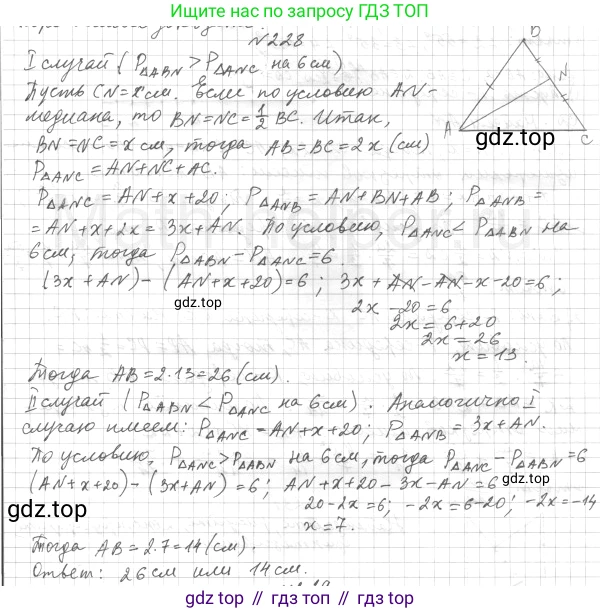 Ищите нас по запросу в поиске
ГДЗ ТОП
N228
I случай (P△ABN > P△ANC на 6 см)
Пусть CN = x см. Если по условию AN-
медиана, то BN = NC = 1/2 BC. Итак,
BN = NC = x см, тогда AB = BC = 2x (см)
P△ANC = AN + NC + AC.
P△ANC = AN + x + 20; P△ANB = AN + BN + AB; P△ANB =
= AN + x + 2x = 3x + AN. По условию, P△ANC < P△ABN на
6 см, тогда P△ABN - P△ANC = 6.
(3x + AN) - (AN + x + 20) = 6; 3x + AN - AN - x - 20 = 6;
2x - 20 = 6
2x = 6 + 20
2x = 26
x = 13.
Тогда AB = 2·13 = 26 (см).
II случай (P△ABN < P△ANC на 6 см). Аналогично I
случаю имеем: P△ANC = AN + x + 20; P△ANB = 3x + AN.
По условию, P△ANC > P△ABN на 6 см, тогда P△ANC - P△ABN = 6
(AN + x + 20) - (3x + AN) = 6; AN + x + 20 - 3x - AN = 6
20 - 2x = 6; -2x = 6 - 20; -2x = -14
x = 7.
Тогда AB = 2·7 = 14 (см).
Ответ: 26 см или 14 см.
A
B
N
C
gdz.top
gdz.top
gdz.top
gdz.top
gdz.top
gdz.top // gdz.top // gdz.top